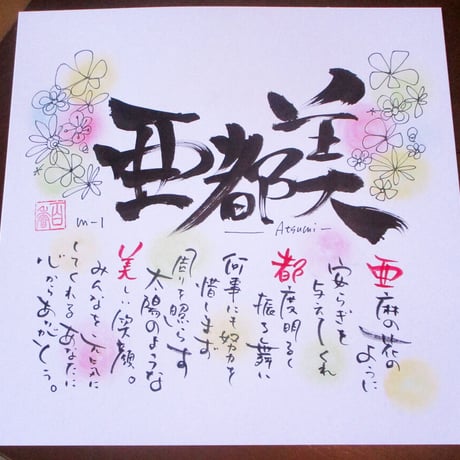 亜都美
- Atsumi -
m-1
亜麻の花のように
安らぎを
与えてくれ
都度明るく
振る舞い
何事にも努力を
惜しまず
周りを照らす
太陽のような
美しい笑顔。
みんなを元気に
してくれるあなたに
心からありがとう。